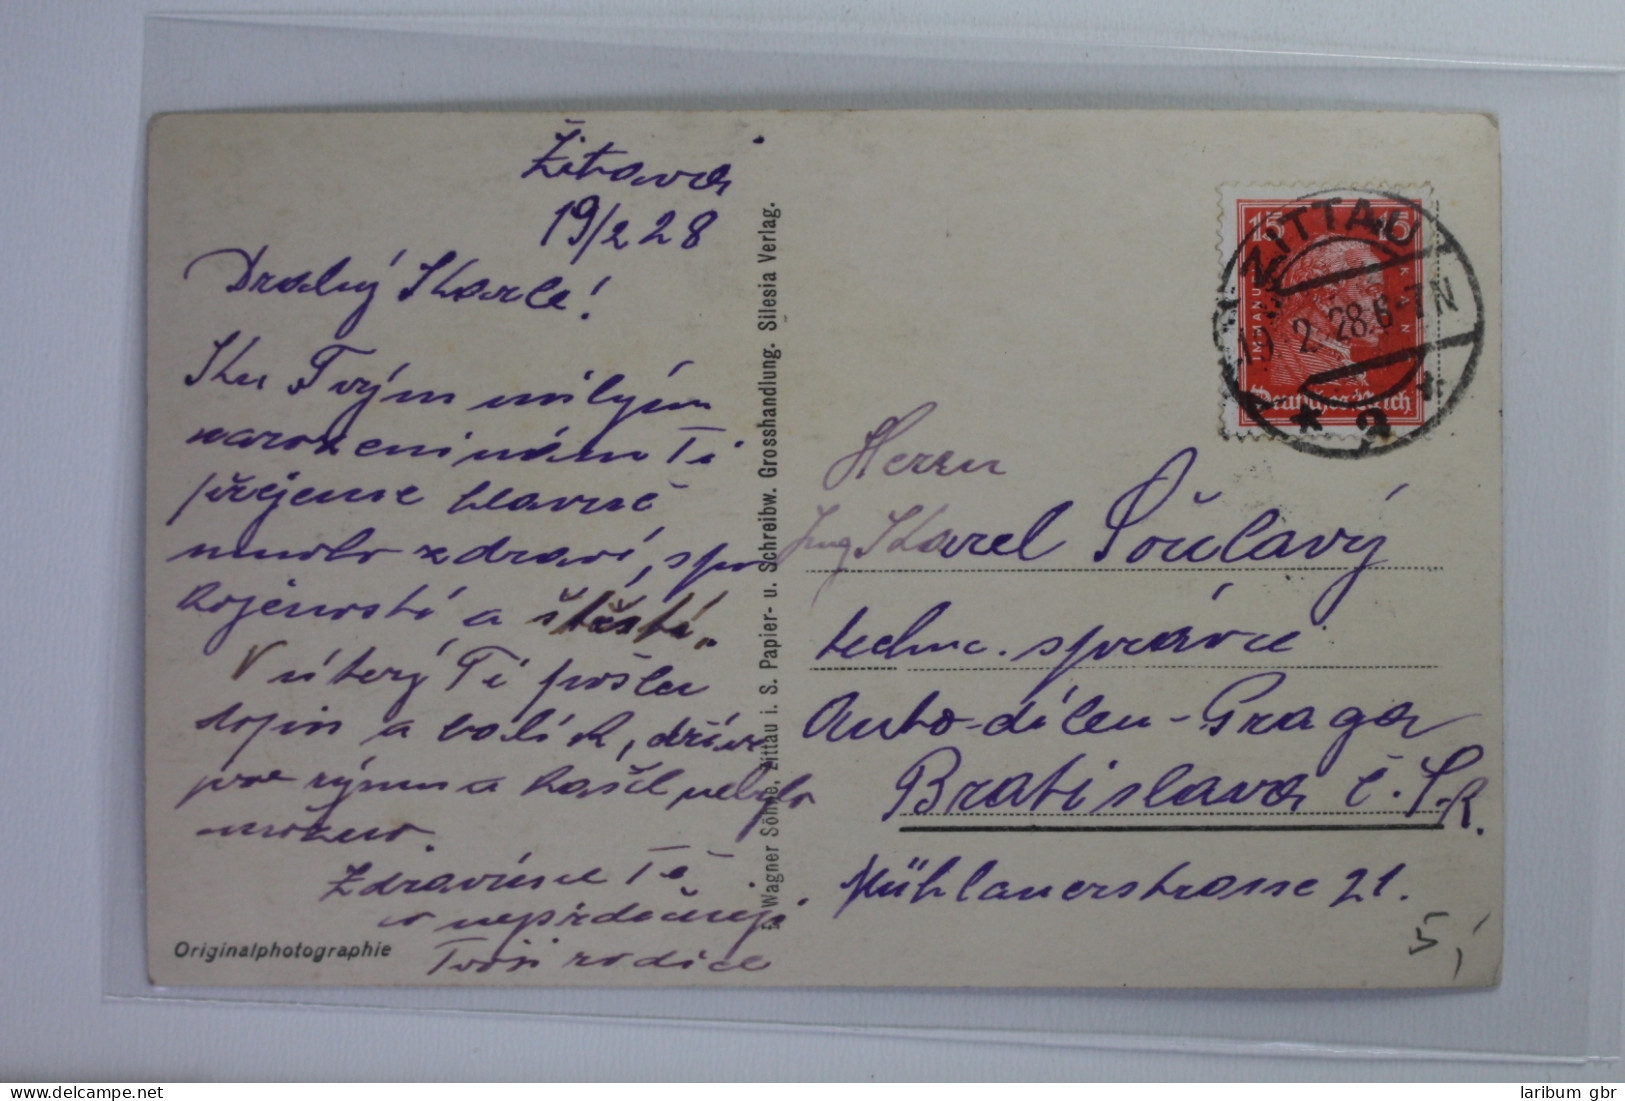 Žitava
19/2 28
Drahý Karle!
Ku Tvým milým
narozeninám Ti
přejeme hlavně
mnoho zdraví, spo
kojenosti a štěstí.
V úterý Ti pošlu
dopis a balík, dříve
pro rýmu a kašel nebylo
možno.
Zdravíme Tě
a
Tvoji rodiče
Originalphotographie
Wagner Söhne, Zittau i. S. Papier- u. Schreibw. Grosshandlung. Silesia Verlag.
15 15
IMMANUEL KANT
Deutsches Reich
ZITTAU
19.2.28.6-7N
* 2 *
Herrn
Ing Karel Šoulavý
techn. správce
Auto-dílen-Praga
Bratislava č.S.R.
Mühlauerstrasse 21.
5,
laribum gbr